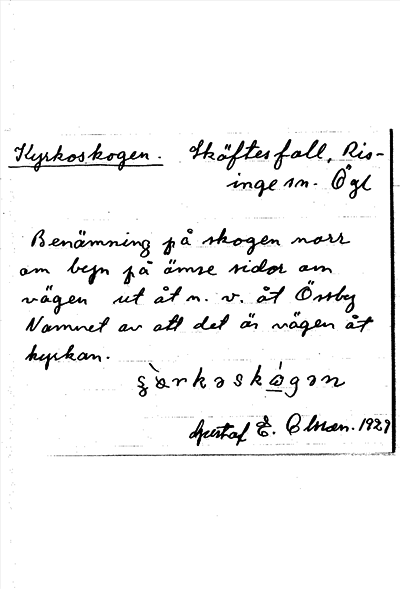 Kyrkoskogen. Skäftesfall, Ris-
inge sn. Ögl
Benämning på skogen norr
om byn på ömse sidor om
vägen ut åt n. v. åt Össby
Namnet av att det är vägen åt
kyrkan.
Gustaf E. Olsson. 1929